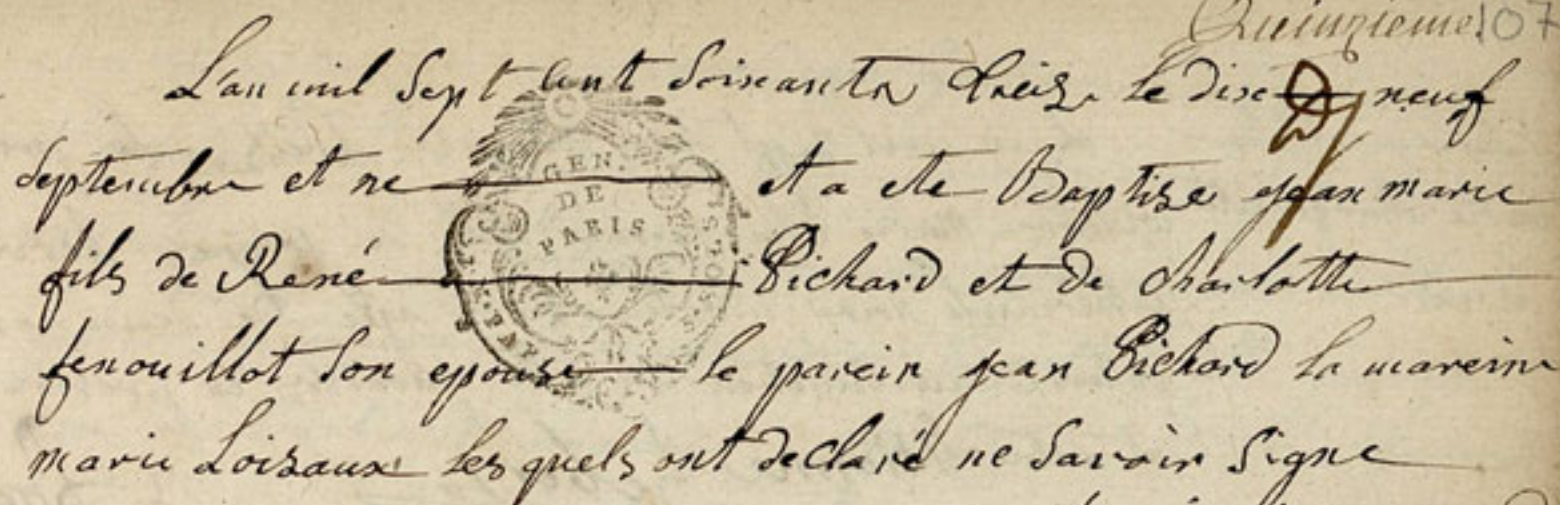 Quinzieme 107
L'an mil Sept cent Soixante treize le dixe neuf
Septembre et ne et a ete Baptize jean marie
GEN.
DE
PARIS
fils de René Pichard et de charlotte
fenouillot Son epouse le parein jean Pichard la mareine
marie Loizaux les quels ont declaré ne Savoir Signe